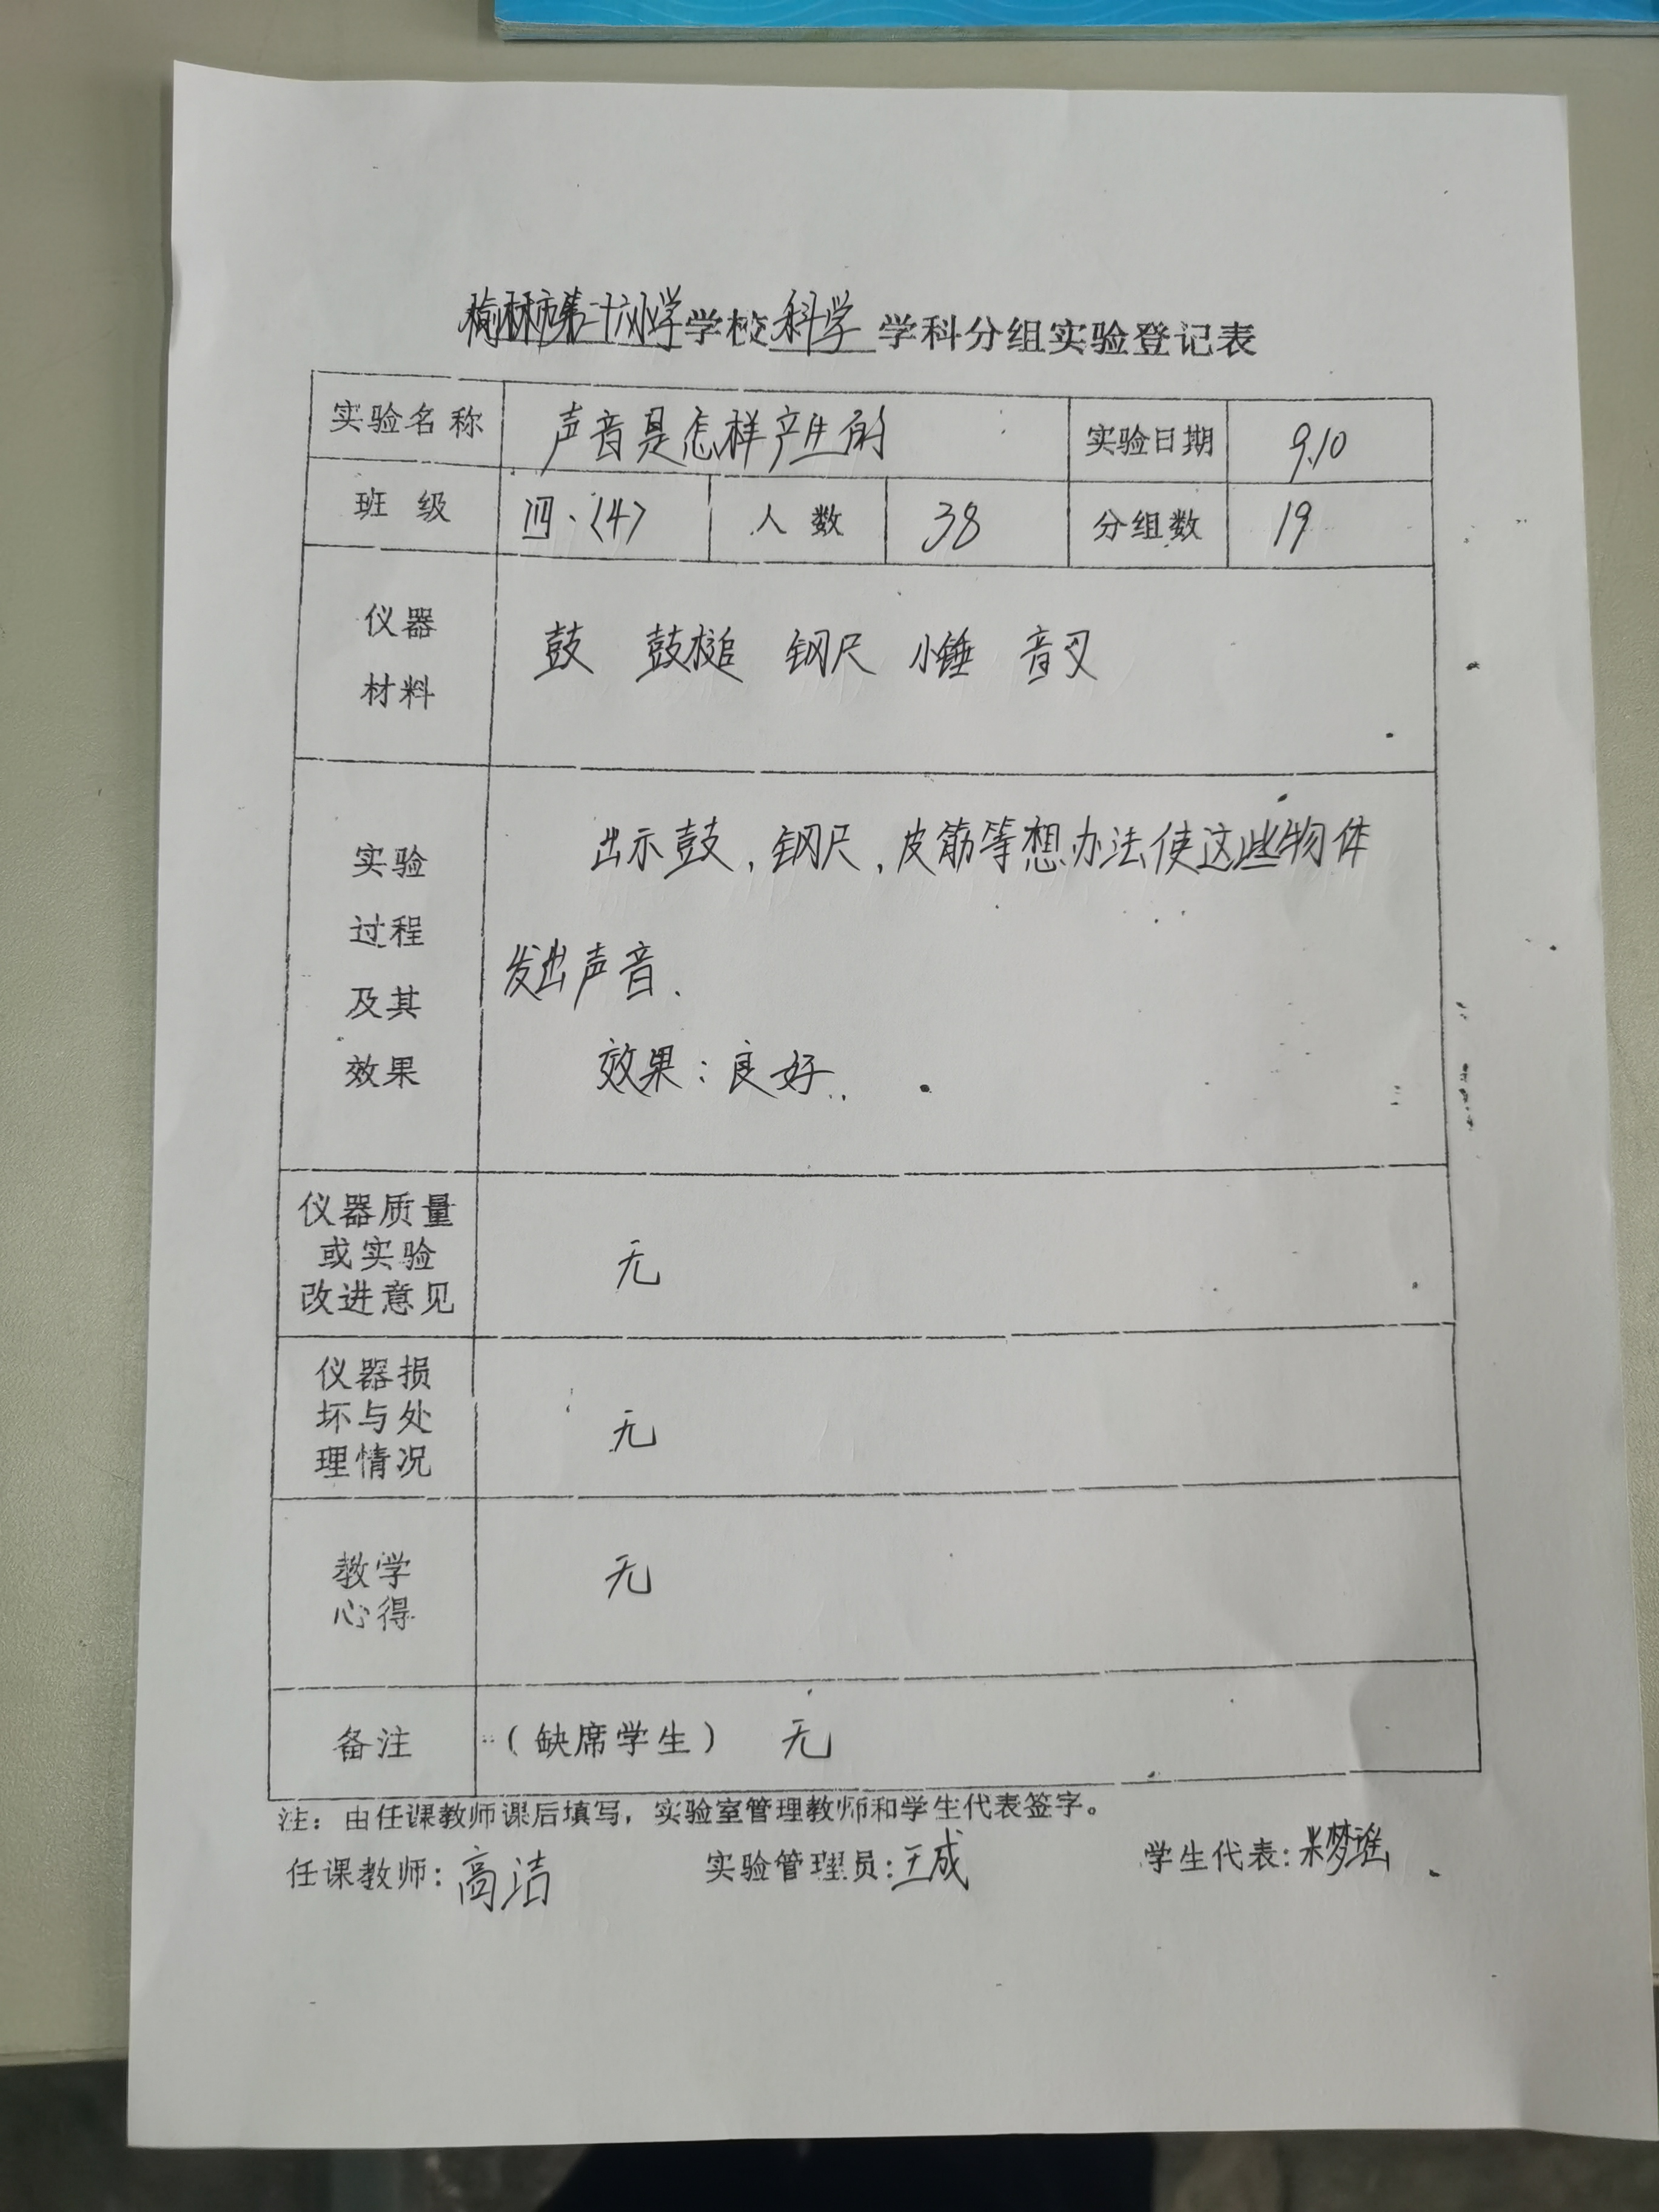 榆林市第二十六小学学校科学学科分组实验登记表
实验名称 声音是怎样产生的 实验日期 9.10
班级 四、〈4〉 人数 38 分组数 19
仪器
材料
鼓 鼓槌 钢尺 小锤 音叉
实验
过程
及其
效果
出示鼓，钢尺，皮筋等想办法使这些物体
发出声音.
效果：良好.
仪器质量
或实验
改进意见
无
仪器损
坏与处
理情况
无
教学
心得
无
备注 （缺席学生） 无
注：由任课教师课后填写，实验室管理教师和学生代表签字。
任课教师：高洁 实验管理员：王成 学生代表：米梦瑶